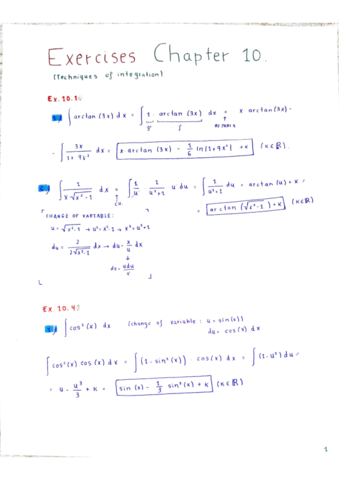 Exercises Chapter 10.
(Techniques of integration)
Ex. 10.1:
1.) ∫ arctan (3x) dx = ∫ 1 · arctan (3x) dx = x arctan (3x) -
g' f
- ∫ 3x / 1+9x² dx = x arctan (3x) - 1/6 ln(1+9x²) + K (K∈ℝ).
2.) ∫ 1 / x·√x²-1 dx = ∫ 1/u · 1/u²+1 u du = ∫ 1/u²+1 du = arctan (u) + K =
CHANGE OF VARIABLE: = arctan (√x²-1) + K (K∈ℝ)
u = √x²-1 → u² = x²-1 → x² = u²+1
du = 2 / 2√x²-1 dx → du = x/u dx
dx = u du / x
Ex. 10.4:
1.) ∫ cos³ (x) dx (change of variable: u = sin(x))
du = cos(x) dx
∫ cos²(x) cos (x) dx = ∫ (1 - sin²(x)) · cos (x) dx = ∫ (1-u²) du =
= u - u³/3 + K = sin (x) - 1/3 sin³ (x) + K (K∈ℝ)
1